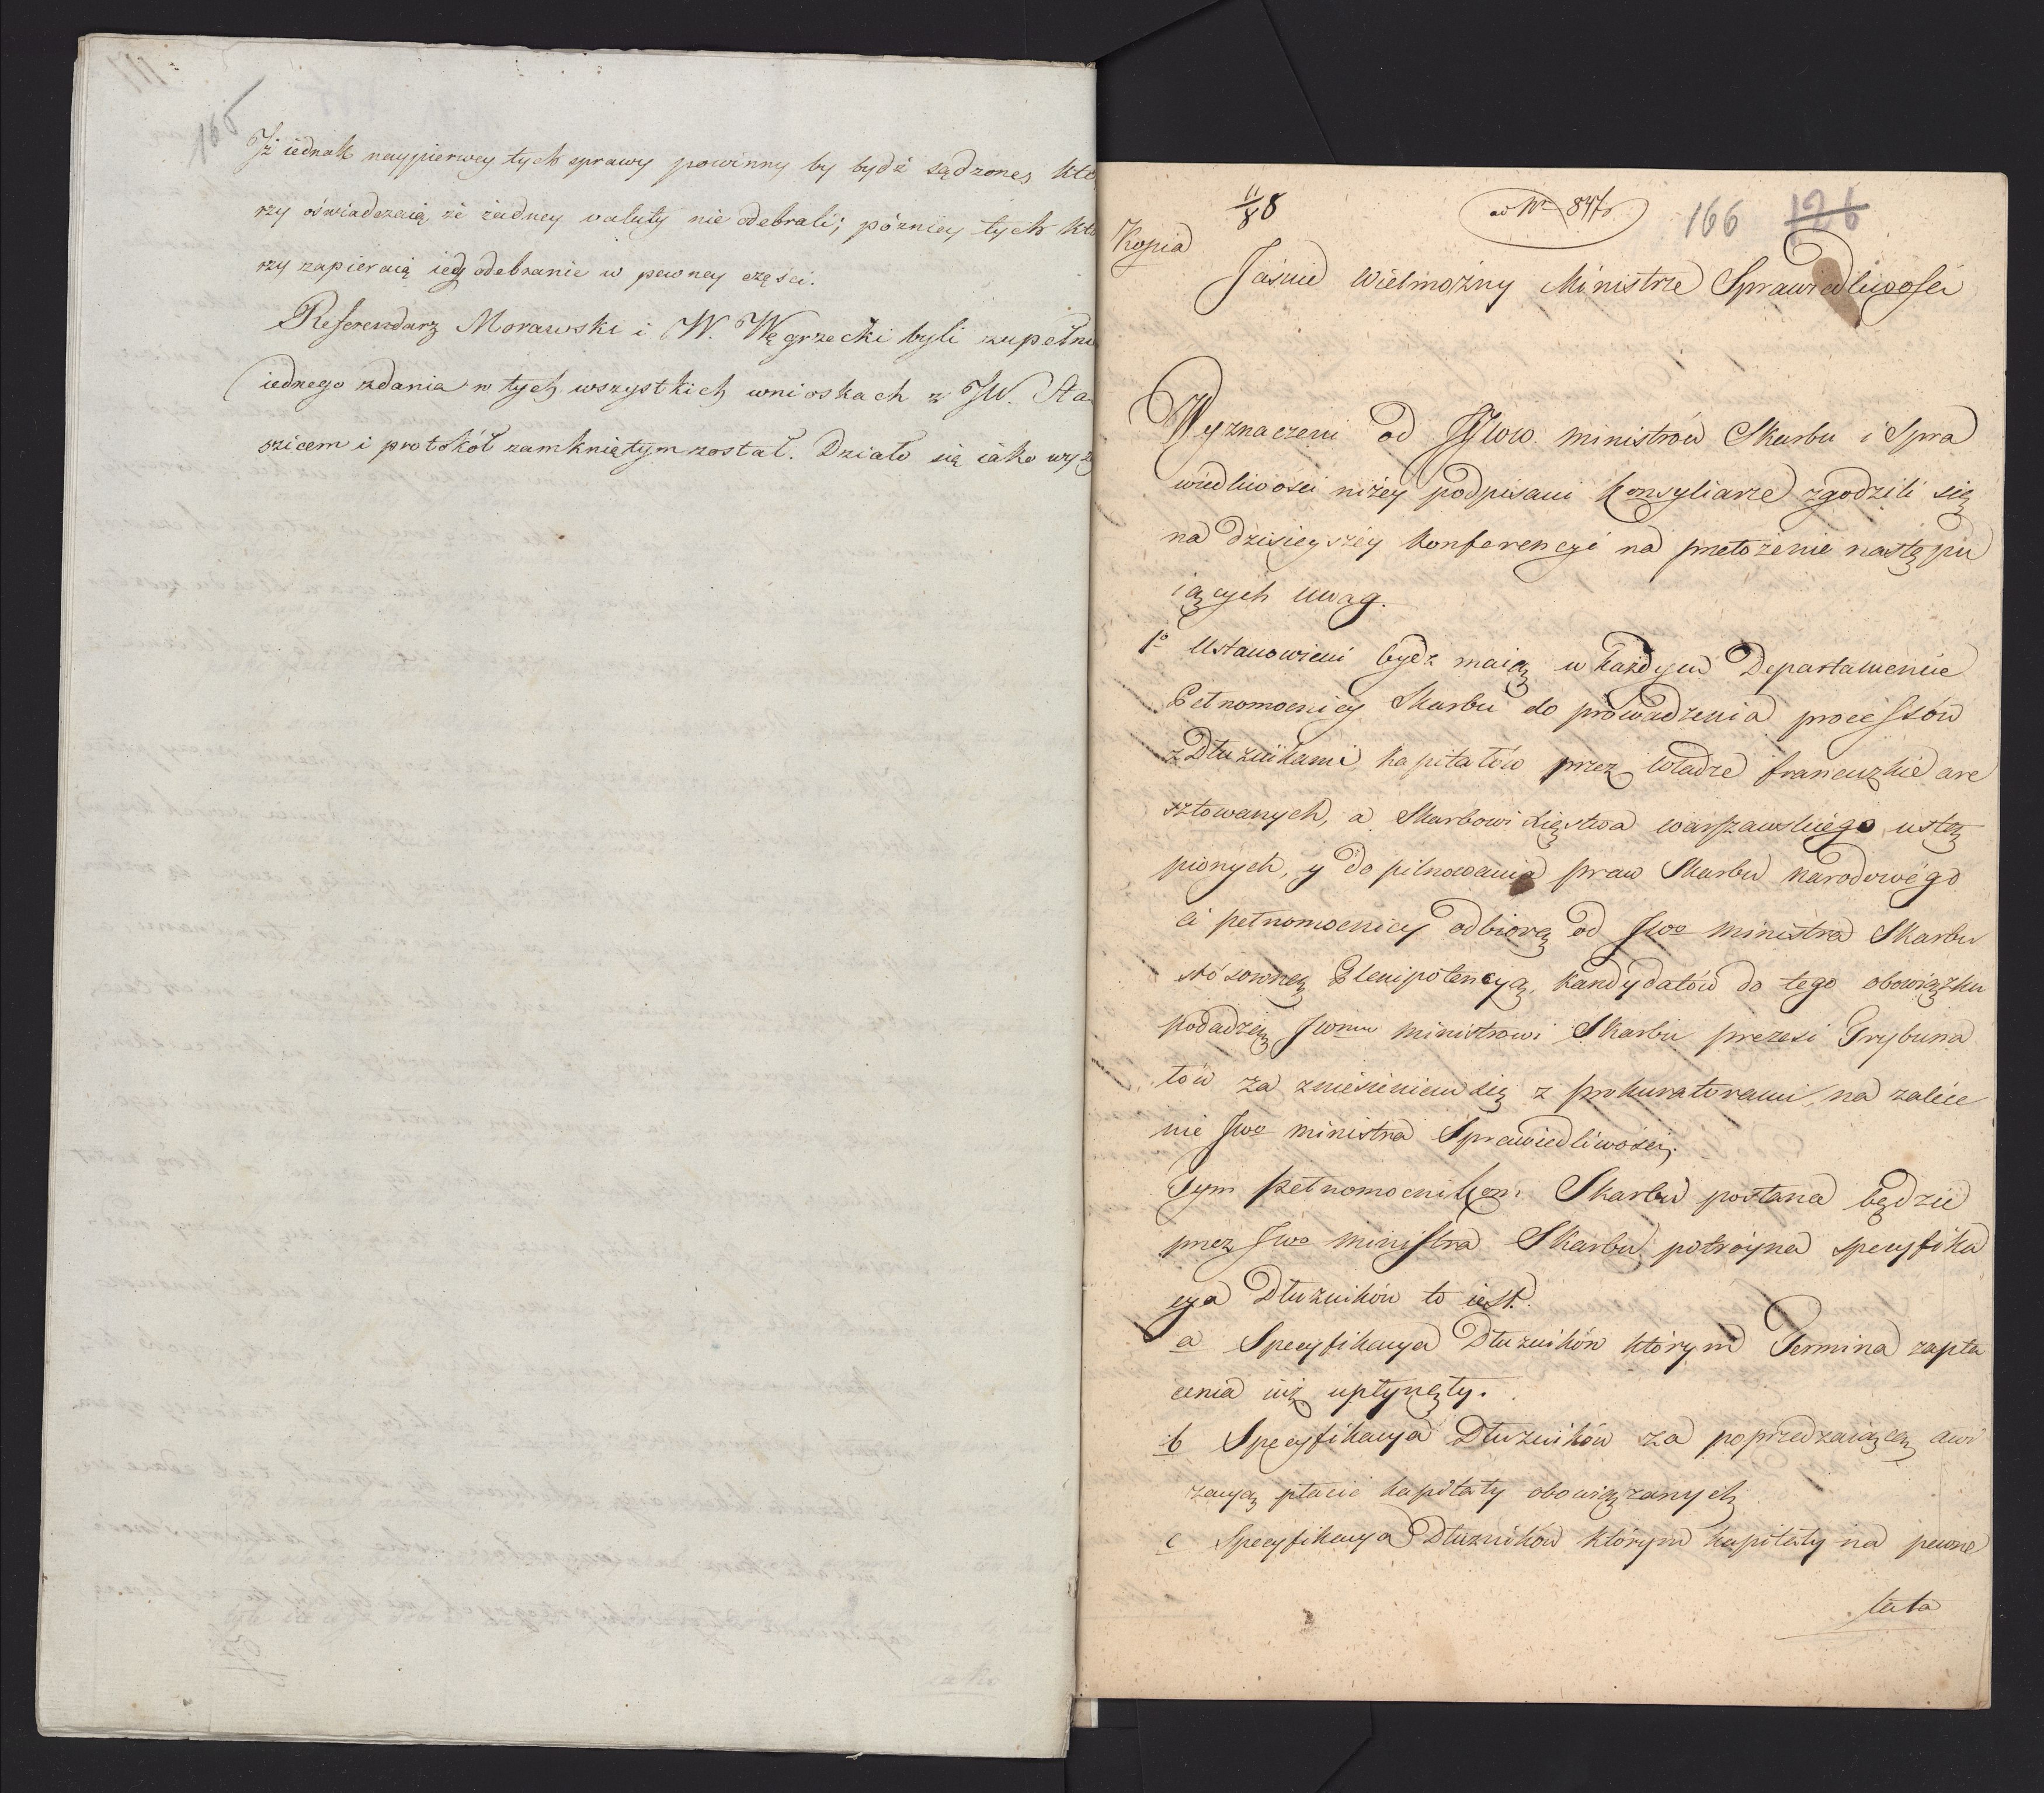 165
Jż iednak naypierwey tych sprawy powinny by bydź sądzone, któ
rzy oświadczaią że żadney waluty nie odebrali; pózniey tych któ
rzy zapieraią iey odebranie w pewney części.
Referendarz Morawski i W. Węgrzecki byli zupełnie
iednego zdania w tych wszystkich wnioskach z JW. Sta-
szicem i protokół zamkniętym został. Działo się iako wyżey
11/8 8
ad Nr 847
166 126
Kopia
Jaśnie Wielmożny Ministrze Sprawiedliwości
Wyznaczeni od JJWW ministrów Skarbu i Spra
wiedliwości niżey podpisani Konsyliarze zgodzili się
na dzisieyszéy Konferencyi na przełożenie następu
iących uwag.
1o Ustanowieni bydz maią w każdym Departamencie
Pełnomocnicy Skarbu do prowadzenia processów
z Dłużnikami kapitałów przez władze francuzkie are
sztowanych, a Skarbowi Xięstwa warszawskiego ustą
pionych, y do pilnowania praw Skarbu narodowégo
ci pełnomocnicy odbiorą od JWo ministra Skarbu
stósowną Plenipotencyą, kandydatów do tego obowiązku
podadzą JWmu ministrowi Skarbu prezesi Trybuna
łów za zniesieniem się z prokuratorami, na zalece
nie JWo ministra Sprawiedliwości,
Tym pełnomocnikom Skarbu posłana będzie
przez JWo ministra Skarbu potróyna specyfika
cya Dłużników to iest.
a Specyfikacya Dłużników którym Termina zapła
cenia iuż upłynęły.
b Specyfikacya Dłużników za poprzedzaiącą awi
zacyą płacić kapitały obowiązanych
c Specyfikacya Dłużników którym kapitały na pewne
lata